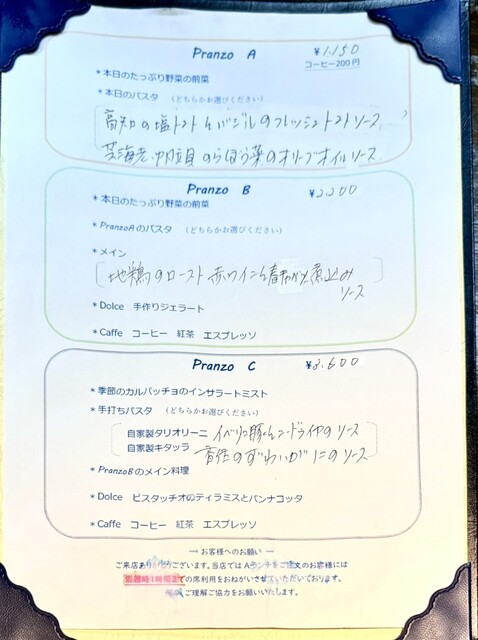 Pranzo A ¥1,150
コーヒー200円
*本日のたっぷり野菜の前菜
*本日のパスタ （どちらかお選びください）
高知の塩トマトとバジルのフレッシュトマトソース
芝海老、帆立貝のらぼう菜のオリーブオイルソース
Pranzo B ¥2,200
*本日のたっぷり野菜の前菜
*PranzoAのパスタ （どちらかお選びください）
*メイン
地鶏のロースト 赤ワインと春 煮込み
ソース
*Dolce 手作りジェラート
*Caffe コーヒー 紅茶 エスプレッソ
Pranzo C ¥3,600
*季節のカルパッチョのインサラートミスト
*手打ちパスタ （どちらかお選びください）
自家製タリオリーニ イベリコ豚とンドゥイヤのソース
自家製キタッラ のずわいがにのソース
*PranzoBのメイン料理
*Dolce ピスタチオのティラミスとパンナコッタ
*Caffe コーヒー 紅茶 エスプレッソ
― お客様へのお願い ―
ご来店ありがとうございます。当店ではAランチをご注文のお客様には
混雑時1時間までの席利用をおねがいさせていただいております。
ご理解ご協力をお願いいたします。